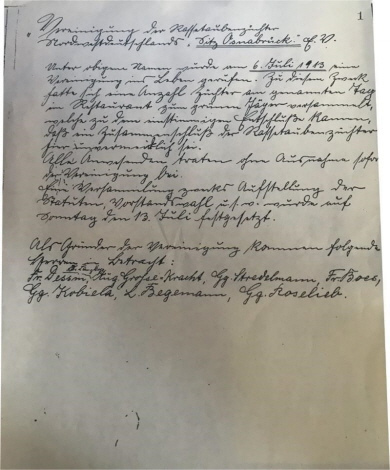 1
„Vereinigung der Rassetaubenzüchter
Nordwestdeutschlands", Sitz Osnabrück. e. V.
Unter obigem Namen wurde am 6. Juli 1913 eine
Vereinigung ins Leben gerufen. Zu diesem Zweck
hatte sich eine Anzahl Züchter am genannten Tage
im Restaurant zum grünen Jäger versammelt,
welche zu dem einstimmigen Entschluß kamen,
daß ein Zusammenschluß der Rassetaubenzüchter
hier unvermeidlich sei.
Alle Anwesenden traten ohne Ausnahme sofort
der Vereinigung bei.
Eine Versammlung zwecks Aufstellung der
Statuten, Vorstandswahl u.s.w. wurde auf
Sonntag den 13. Juli festgesetzt.
Als Gründer der Vereinigung kommen folgende
Herren in Betracht:
Fr. Dessin, Aug. Grosse-Kracht, Gg. Stredelmann, Fr. Boss,
Gg. Kobiela, L. Begemann, Gg. Koselieb.